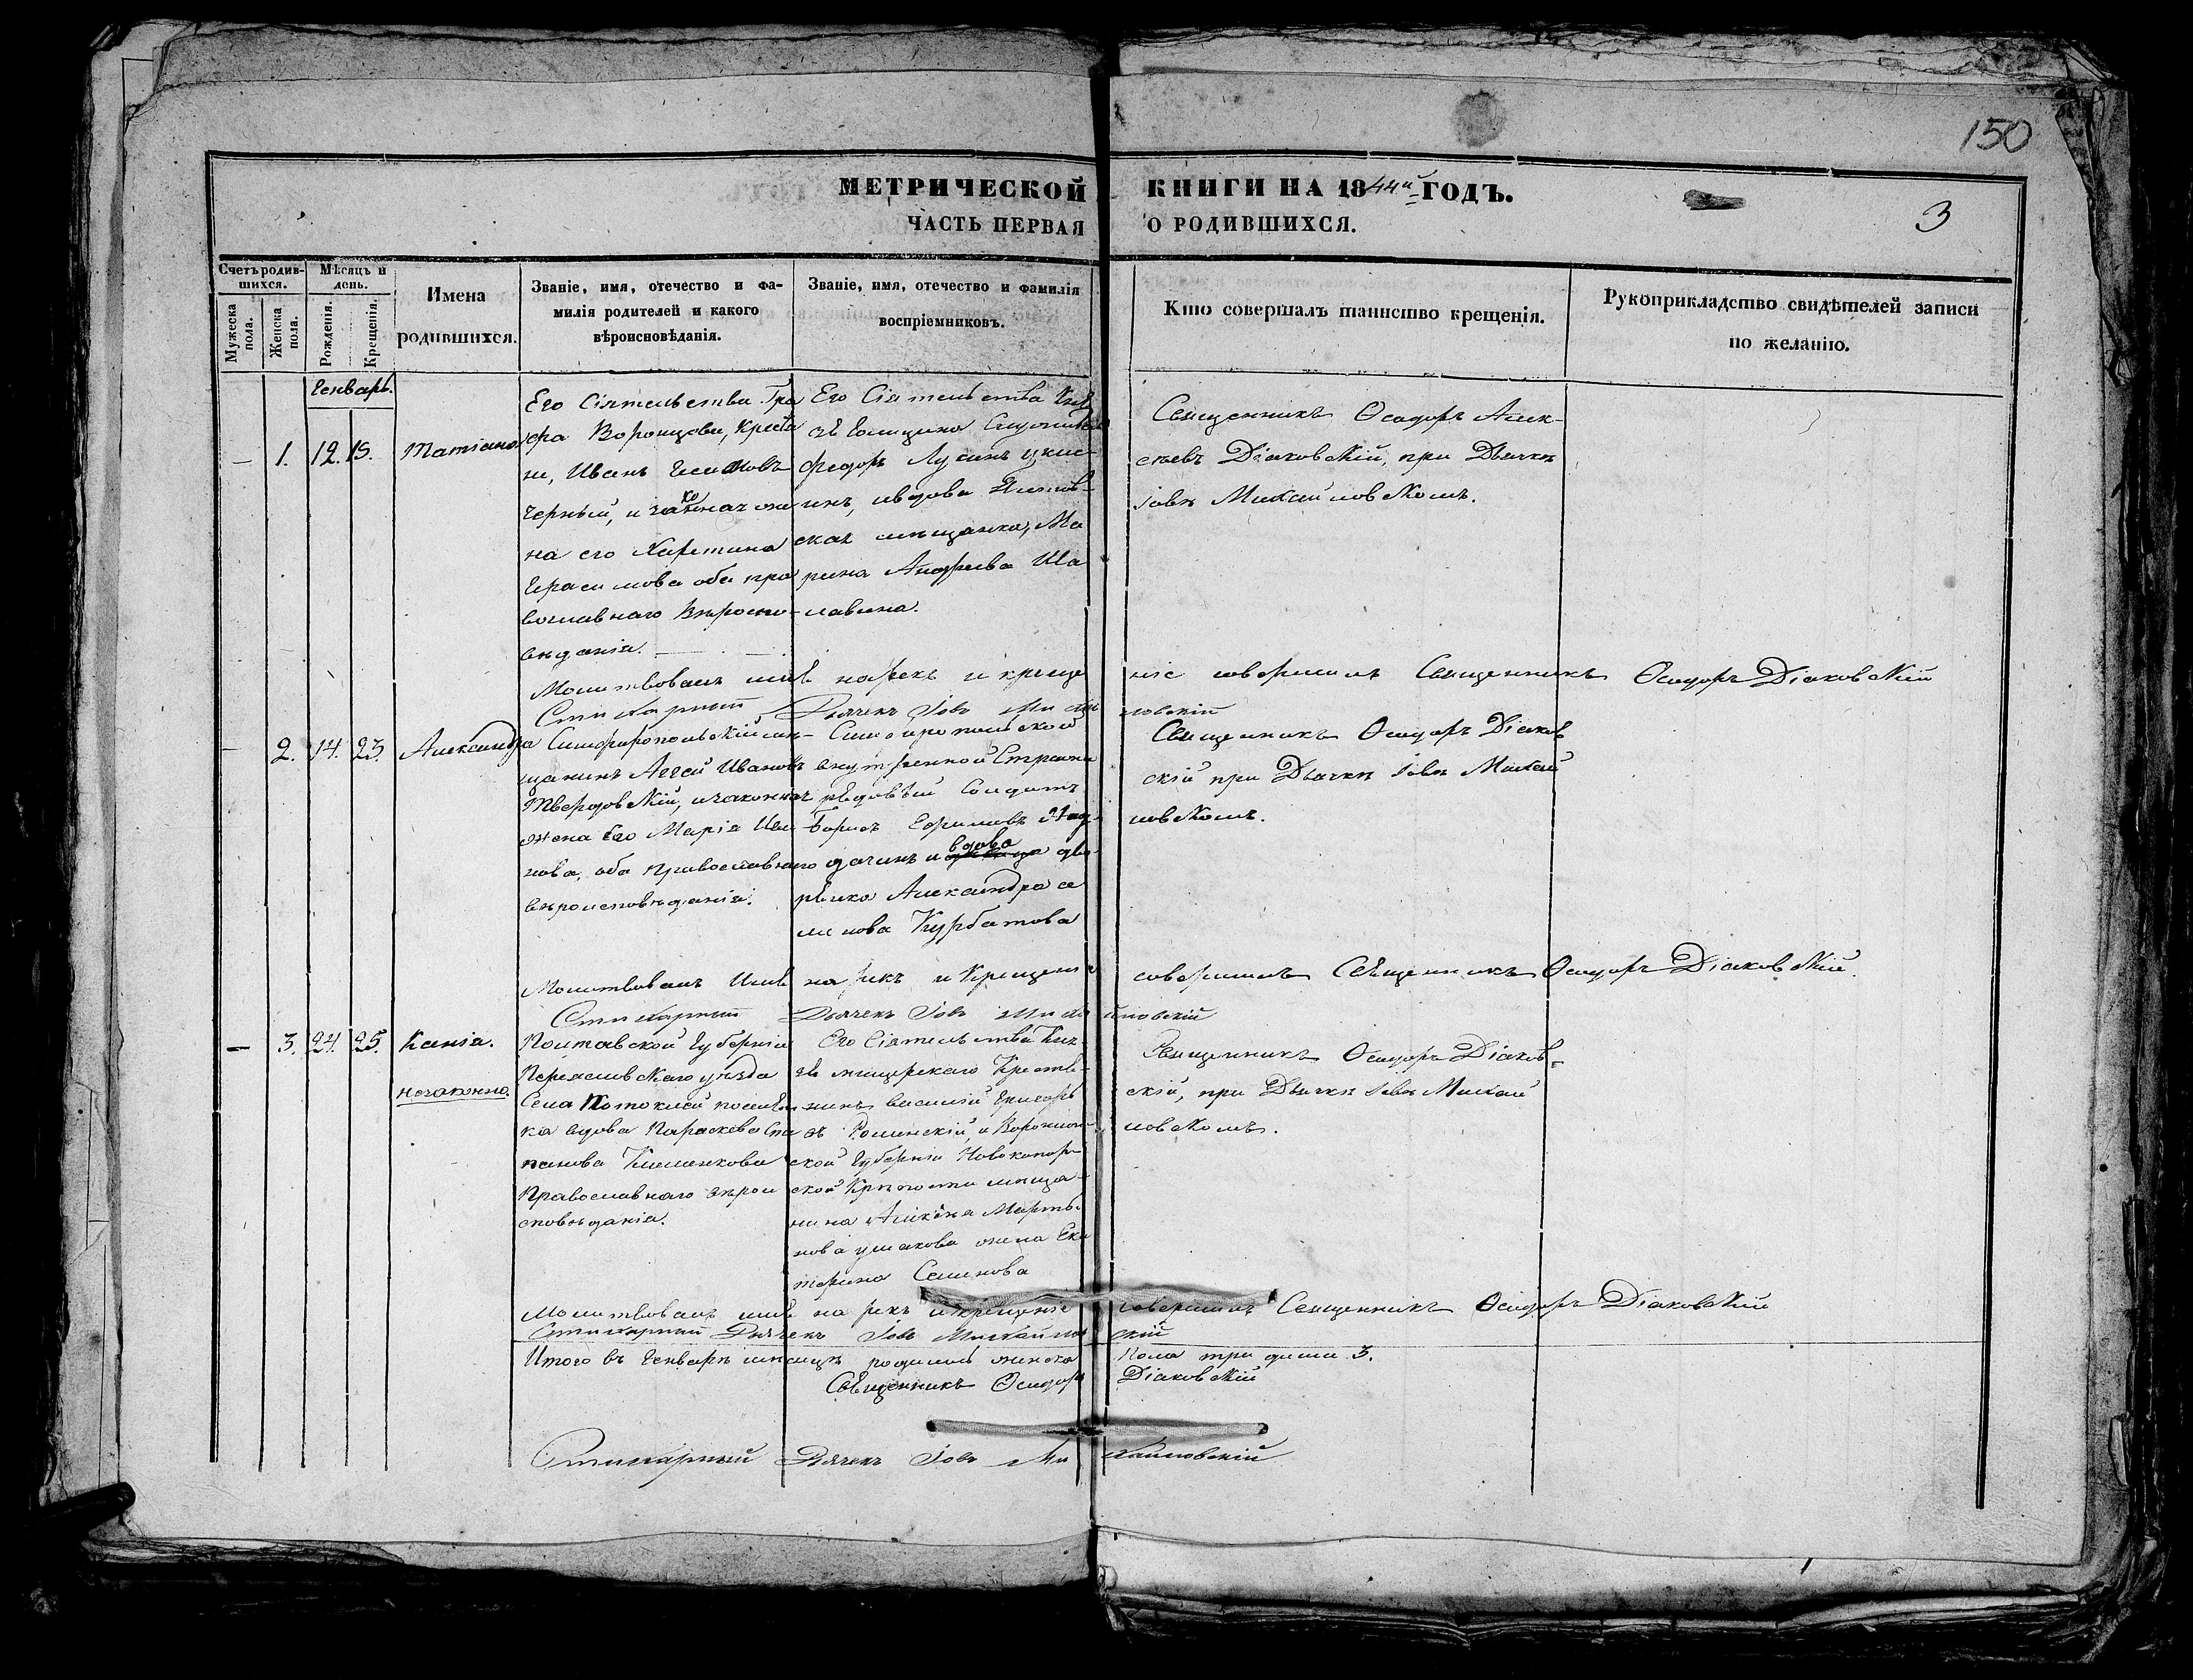 150
МЕТРИЧЕСКОЙ КНИГИ НА 1844й ГОДЪ.
ЧАСТЬ ПЕРВАЯ О РОДИВШИХСЯ.
3
Счетъ родившихся.
Мужеска пола.
Женска пола.
Мѣсяцъ и день.
Рожденія.
Крещенія.
Имена родившихся.
Званіе, имя, отечество и фа-
милія родителей и какого
вѣроисповѣданія.
Званіе, имя, отечество и фамилія
воспріемниковъ.
Кто совершалъ таинство крещенія.
Рукоприкладство свидѣтелей записи
по желанію.
Генварь.
— 1. 12. 15. Татіана
Его Сіятельства Гра
фа Воронцова, Крестья
Иванъ
Черный, и законная жи
на его Харитина
Герасимова оба пра
вославнаго вѣроиспо-
вѣданія.
Его Сіятельства Кня
зя Голицына
Федоръ
инъ, и вдова
ская мѣщанка, Ма
рина Андреева Ша
лавина.
Священникъ Ѳеодоръ Алек-
сѣевъ Діаковскій, при Дьячкѣ
Іовѣ Михайловскомъ.
Молитвовалъ имя нарекъ и креще ніе совершилъ Священникъ Ѳеодоръ Діаковскій
Стихарный Дьячекъ Іовъ Михай ловскій
— 2. 14. 23. Александра
Симферопольскій мѣ-
щанинъ Аггей Ивановъ
Твердовскій, и законная
жена Его Марія Ива
нова, оба православнаго
вѣроисповѣданія.
Симферопольской
внутренной Стражи
рядовый Солдатъ
Борисъ Ефимовъ
и вдова дво
рянка Александра се
менова Курбатова
Священникъ Ѳеодоръ Діаков
скій при Дьячкѣ Іовѣ Михай
ловскомъ.
Молитвовалъ Имя нарекъ и Крещеніе совершилъ Священникъ Ѳеодоръ Діаковскій.
Стихарный Дьячекъ Іовъ Михай ловскій
— 3. 24. 25. Ксенія.
незаконно.
Полтавской Губерніи
Переяславскаго уѣзда
Села
ка вдова Параскева Сте
панова Клименкова
Православнаго вѣрои
сповѣданія.
Его Сіятельства Кня-
зя Крестья-
нинъ Василій Григорь
въ Роменскій, и Воронеж-
ской Губерніи Новохопер-
ской Крѣпости мѣща-
нина Алексѣя Марты-
нова ушакова жена Ека
терина Семенова
Священникъ Ѳеодоръ Діаков-
скій, при Дьячкѣ Іовѣ Михай
ловскомъ.
Молитвовалъ имя нарекъ и крещеніе совершилъ Священникъ Ѳеодоръ Діаковскій
Стихарный Дьячекъ Іовъ Михайлов скій
Итого въ Генварѣ мѣсяцѣ родилось женска пола три души 3.
Священникъ Ѳеодоръ Діаковскій
Стихарный Дьячекъ Іовъ Ми хайловскій